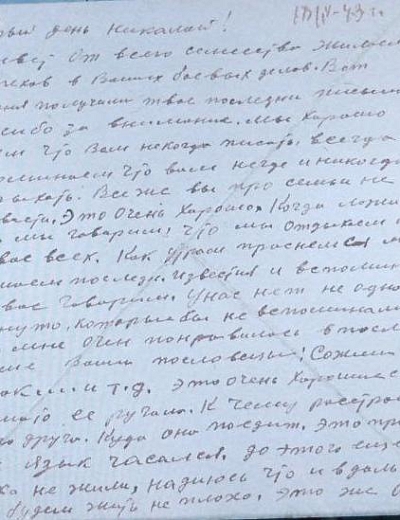 рый день николай! 18/IV-43 г.
ивет от всего семейства желаем
пехов в Ваших боевых делов. Вот
ня получили твое последни письмо
сибо за внимание. мы хорошо
ем что Вам некогда писать, всегда
поминаем что вам негде и никогда
дыхать. Все же вы про семьи не
ваете. Это очень хорошо. Когда ложи
мы говорим, что мы отдыхаем
вас всех. Как утром проснемся м
шаем последн. известия и вспомин
вас говорим. У нас нет не одно
нуто, которые бы не вспоминали
мне очен понравилось в посл
ме Ваши пословецы: Сожми
и т.д. это очень хорошие
ее ругала. К чему расстра
друга. Куда она поедит. Это пр
язык часался. до этого еще
ко не жили, надиюсь что и в даль
будем жить не плохо, это же